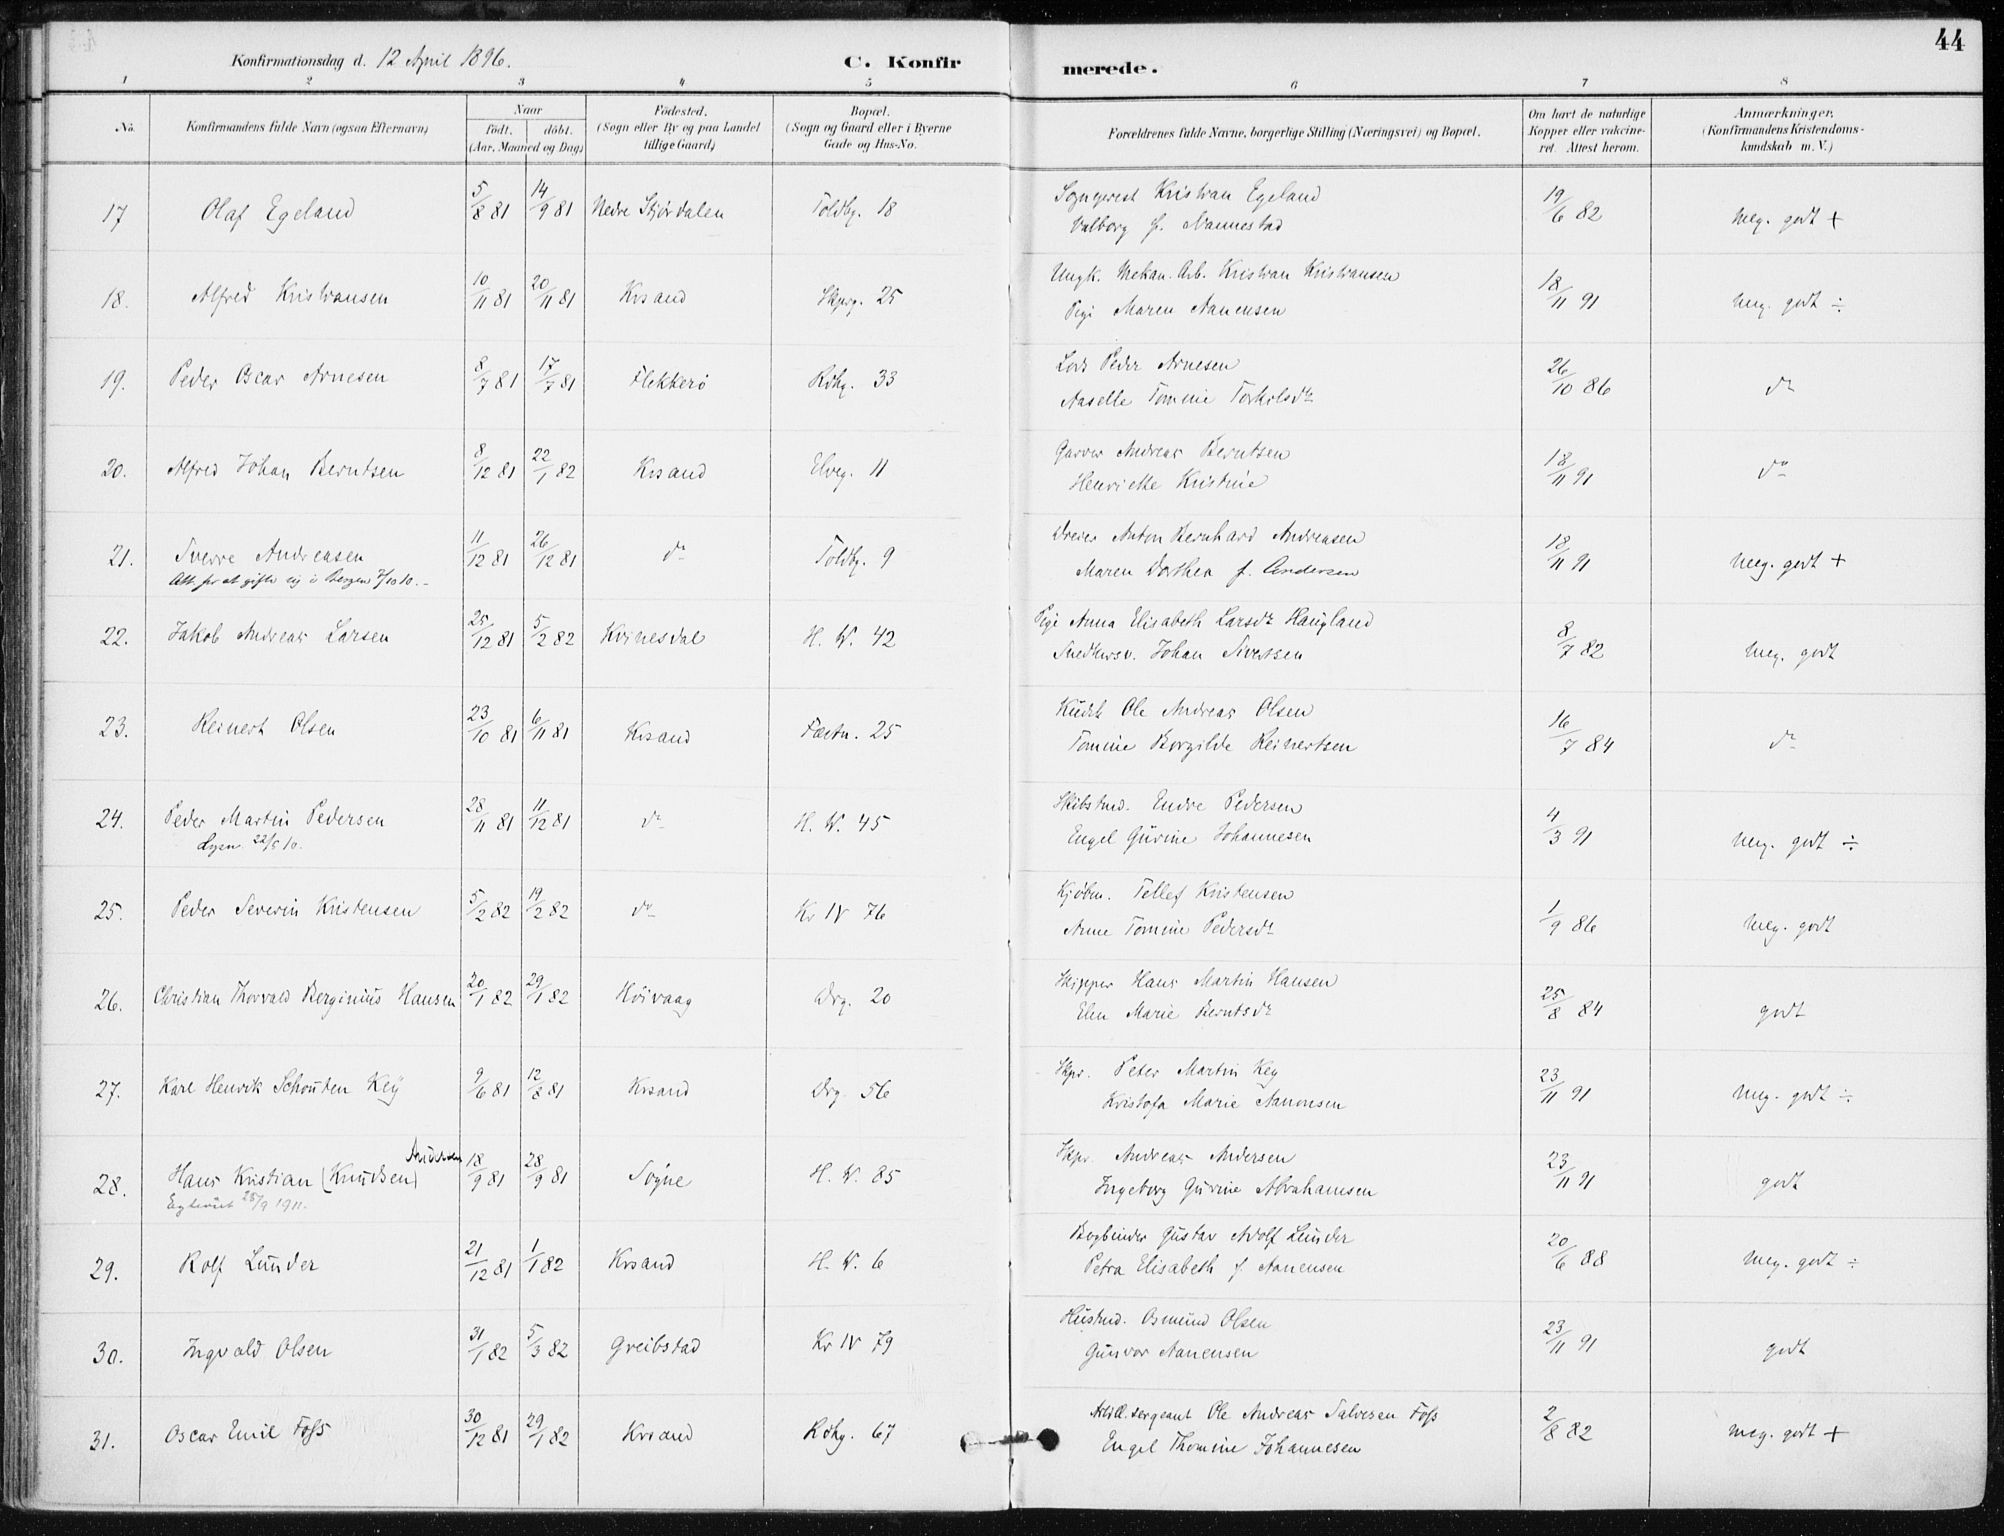 44
Konfirmationsdag d. 12 April 1896. C. Konfirmerede.
1 2 3 4 5 6 7 8
No. Konfirmandens fulde Navn (ogsaa Efternavn) Naar födt. döbt. (Aar, Maaned og Dag) Födested. (Sogn eller By og paa Landet tillige Gaard) Bopæl. (Sogn og Gaard eller i Byerne Gade og Hus-No. Forældrenes fulde Navne, borgerlige Stilling (Næringsvei) og Bopæl. Om havt de naturlige Kopper eller vakcineret. Attest herom. Anmærkninger. (Konfirmandens Kristendomskundskab m. V.)
17 Olaf Egeland 5/8 81 14/9 81 Nedre Stjørdalen Toldbg. 18 Sogneprest Kristian Egeland 19/6 82 meg. godt +
Valborg f. Nannestad
18. Alfred Kristiansen 10/11 81 20/11 81 Krsand Skprg. 25 Ungk. Mekan. Arb. Kristian Kristiansen 18/11 91 meg. godt ÷
Pigi Maren Aanensen
19. Peder Oscar Arnesen 8/7 81 17/7 81 Flekkerö Rdhg. 33 Lods Peder Arnesen 26/10 86 do
Aaselle Tomine Torkilsdtr
20. Alfred Johan Berntsen 8/12 81 22/1 82 Krsand Elveg. 11 Garver Andreas Berntsen 18/11 91 do
Henriette Kristine
21. Sverre Andreasen 11/12 81 26/12 81 do Toldbg. 9 Dreier Anton Bernhard Andreasen 18/11 91 meg. godt +
Att. for at gifte sig i Bergen 7/10 10. - Maren Dorthea f. Andersen
22. Jakob Andreas Larsen 25/12 81 5/2 82 Kvinesdal H. W. 42 Pige Anna Elisabeth Larsdtr Haugland 8/7 82 meg. godt
Snedkersv. Johan Sivertsen
23. Reinert Olsen 23/10 81 6/11 81 Krsand Fæstn. 25 Kudsk Ole Andreas Olsen 16/7 84 do
Tomine Borgilde Reinertsen
24. Peder Martin Pedersen 28/11 81 11/12 81 do H. W. 45 Skibstmd. Endre Pedersen 4/3 91 meg. godt ÷
Lysn. 22/5 10. Engel Gurine Johannesen
25. Peder Severin Kristensen 5/2 82 19/2 82 do Kr IV 76 Kjøbm. Tellef Kristensen 1/9 86 meg. godt
Anne Tomine Pedersdtr
26. Christian Thorvald Berginius Hansen 20/1 82 29/1 82 Höivaag Drg. 20 Skipper Hans Martin Hansen 25/8 84 godt
Elen Marie Berntsdtr
27. Karl Henrik Schouten Key 9/6 81 12/8 81 Krsand Drg. 56 Skpr. Peter Martin Key 23/11 91 meg. godt ÷
Kristofa Marie Aanonsen
Andersen
28. Hans Kristian (Knudsen) 18/9 81 28/9 81 Søgne H. W. 85 Skpr. Andreas Andersen 23/11 91 godt
28/9 1911. Ingeborg Gurine Abrahamsen
29. Rolf Lunder 21/12 81 1/1 82 Krsand H. W. 6 Bogbinder Gustav Adolf Lunder 20/6 88 meg. godt ÷
Petra Elisabeth f. Aanensen
30. Ingvald Olsen 31/1 82 5/3 82 Greibstad Kr IV 79 Hustmd. Osmund Olsen 23/11 91 godt
Gunvor Aanensen
31. Oscar Emil Foss 30/12 81 29/1 82 Krsand Rdhg. 67 Artill. sergeant Ole Andreas Salvesen Foss 2/8 82 meg. godt +
Engel Thomine Johannesen